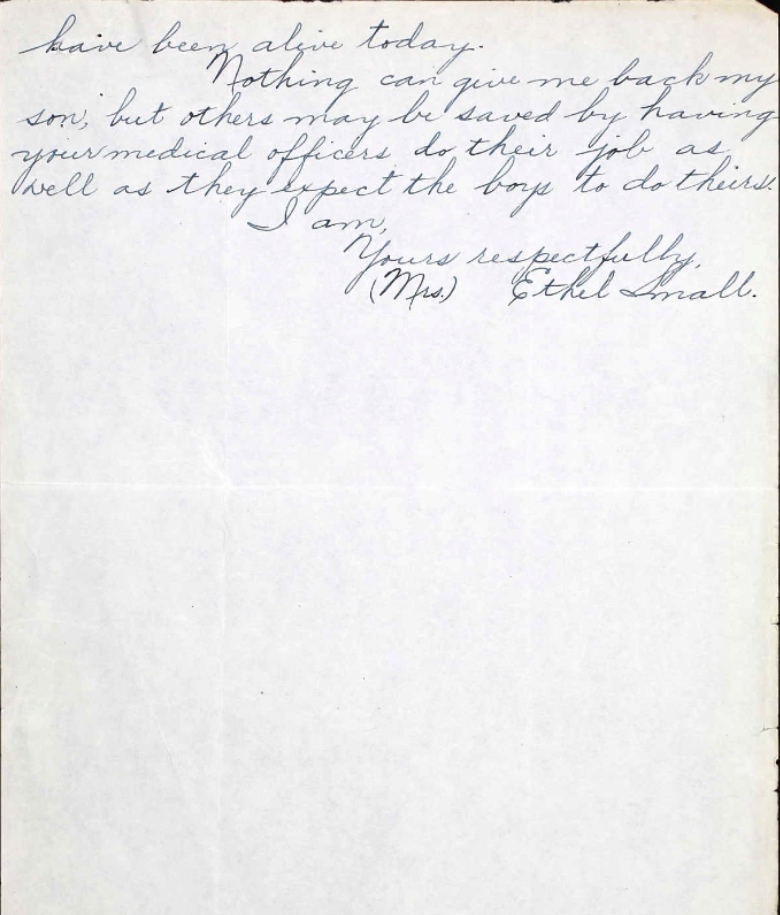 have been alive today.
Nothing can give me back my
son, but others may be saved by having
your medical officers do their job as
well as they expect the boys to do theirs.
I am,
Yours respectfully,
(Mrs.) Ethel Small.